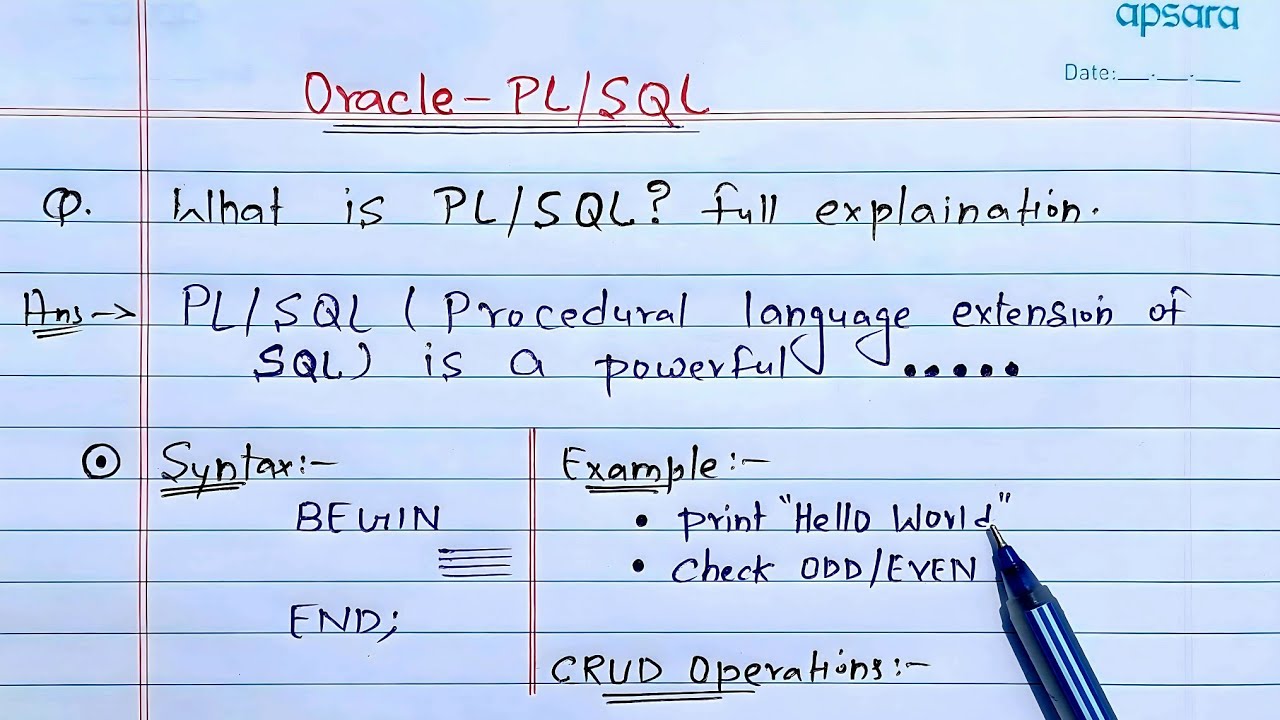 apsara
Date:__.__.___
Oracle - PL/SQL
Q. What is PL/SQL? full explaination.
Ans → PL/SQL (Procedural language extension of
SQL) is a powerful •••••
⊙ Syntax:-
BEGIN
END;
Example:-
• print "Hello World"
• check ODD/EVEN
CRUD Operations:-